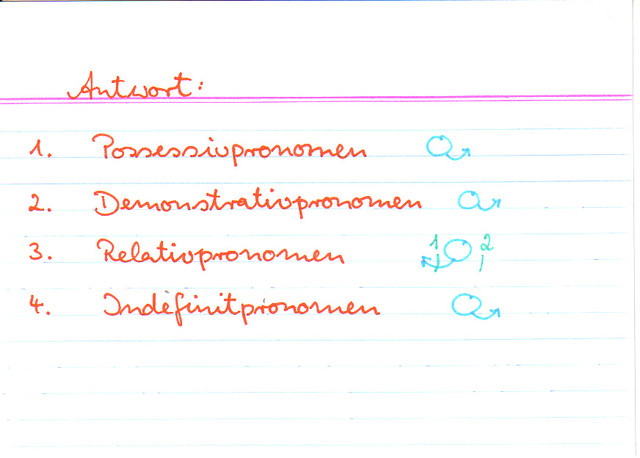 Antwort:
1. Possessivpronomen
2. Demonstrativpronomen
3. Relativpronomen 1 2
4. Indefinitpronomen